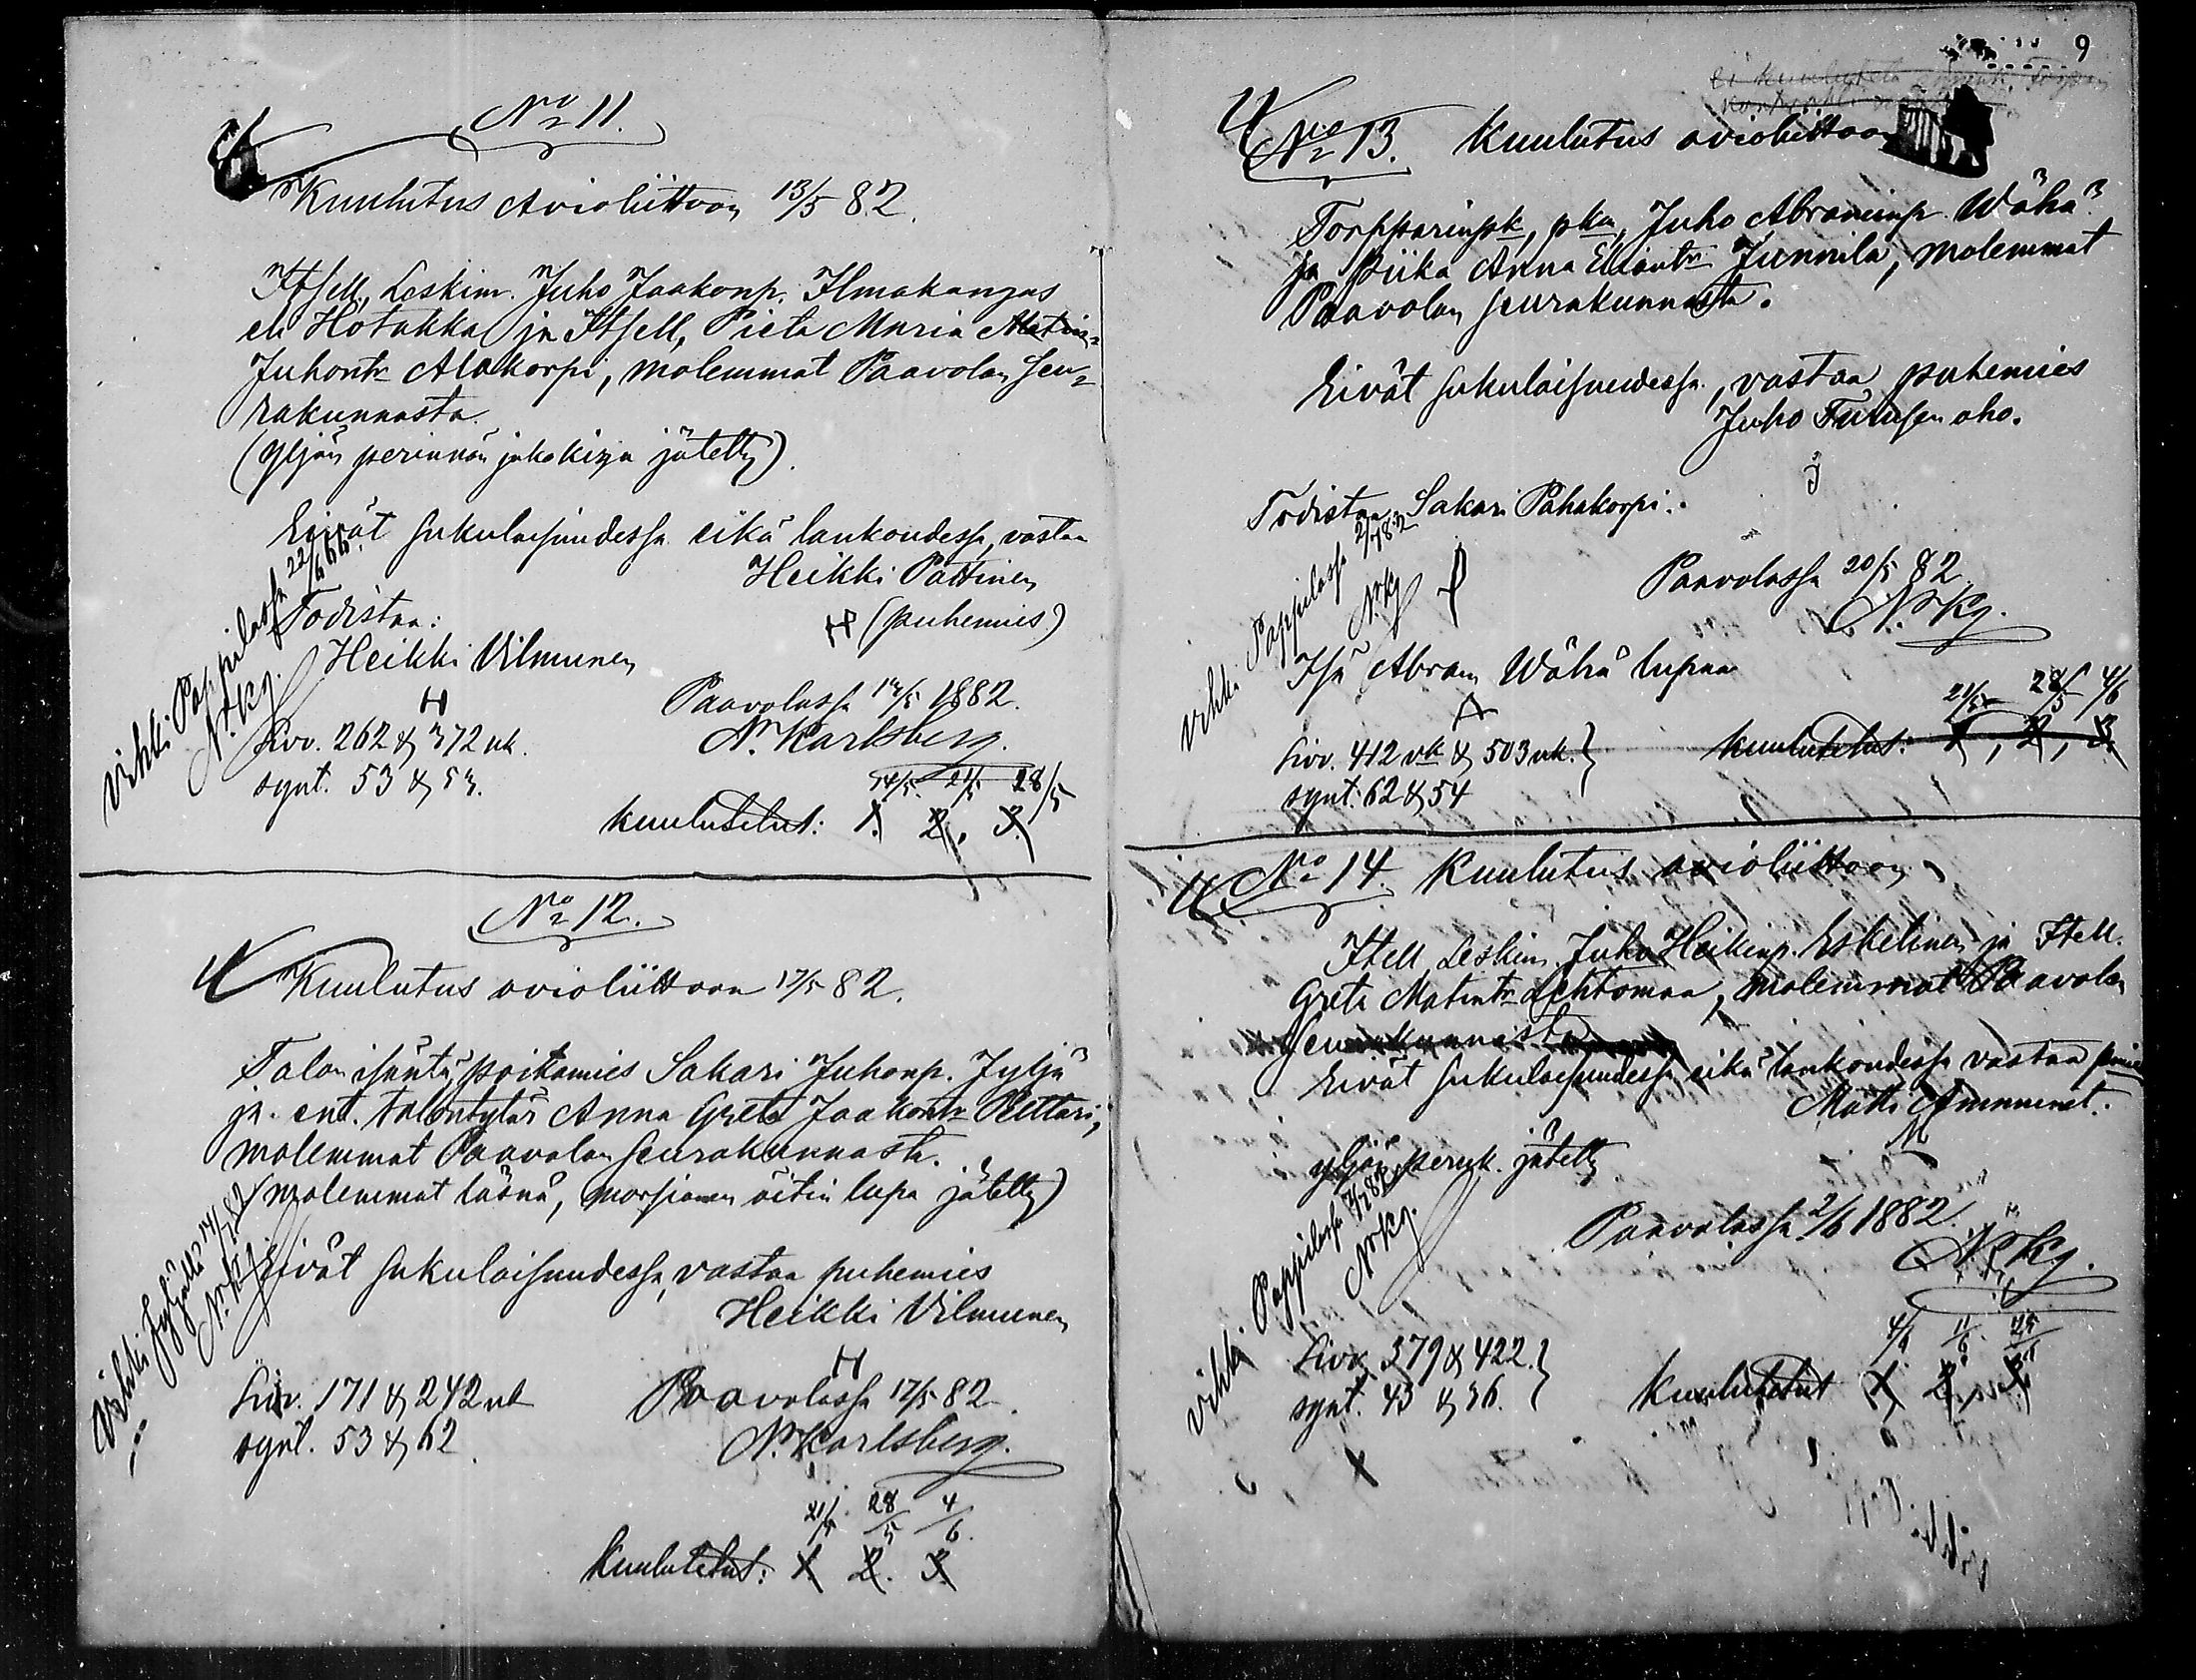 No 11.
Kuulutus Avioliittoon 13/5 82.
Itsell. Leskim. Juho Jaakonp. Ilmakangas
eli Hotakka ja Itsell. Pieta Maria
Juhontr Alakorpi, molemmat Paavolan seu=
rakunnasta.
(Yljän perinnön jakokirja jätetty).
Eivät sukulaisuudessa eikä lankoudessa, vastaa
Heikki Pättinen
H (puhemies)
Todistaa:
Heikki Vilmunen
H
Paavolassa 13/5 1882.
N. Karlsberg.
Vihki Pappilassa
N. Kg.
Siv. 262 & 372 uk.
synt. 53 & 53.
14/5. 21/5 28/5
Kuulutetut: 1. 2. 3.
No 12.
Kuulutus avioliittoon 17/5 82.
Talon isäntä, poikamies Sakari Juhonp. Jyljä
ja ent. talontytär Anna Greta Jaakontr Pelttari,
molemmat Paavolan seurakunnasta.
(molemmat läsnä, morsiamen äitin lupa jätetty)
Eivät sukulaisuudessa, vastaa puhemies
Heikki Vilmunen
H
Vihki Jyljällä
N. Kg.
Siv. 171 & 242 uk
synt. 53 & 62.
Paavolassa 17/5 82.
N. Karlsberg.
21/5. 28/5 4/6.
Kuulutetut: 1. 2. 3.
9
ei kuuluteta
No 13. Kuulutus avioliittoon
Torpparinpk, pka, Juho Abraminp. Wähä
ja piika Anna Eliantr Junnila, molemmat
Paavolan seurakunnasta.
Eivät sukulaisuudessa, vastaa puhemies
Juho Turusenaho.
Todistaa Sakari Pahakorpi.
Paavolassa 20/5 82
N. Kg.
Vihki Pappilassa 2/7 82
N. Kg
Isä Abram Wähä lupaa
A
Siv. 412 vk & 503 uk.
synt. 62 & 54
21/5 28/5 4/6
Kuulutetut: 1, 2, 3.
No 14. Kuulutus avioliittoon
Itsell Leskim. Juho Heikinp. Eskelinen ja Itsell.
Greta Matintr Lehtomaa, molemmat Paavolan
seurakunnasta
Eivät sukulaisuudessa eikä lankoudessa vastaa pmies
Matti Ammunet.
M
yljän peruk. jätetty
Paavolassa 2/6 1882.
N. Kg.
Vihki Pappilassa
N. Kg.
Siv. 379 & 422.
synt. 43 & 36.
4/6 11/6. 25/6
Kuulutetut 1. 2. 3.